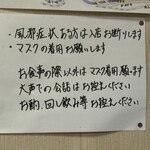 ・風邪症状ある方は入店お断りします
・マスクの着用お願いします
お食事の際以外はマスク着用願います
大声での会話はお控えください
お酌、回し飲み等お控えください